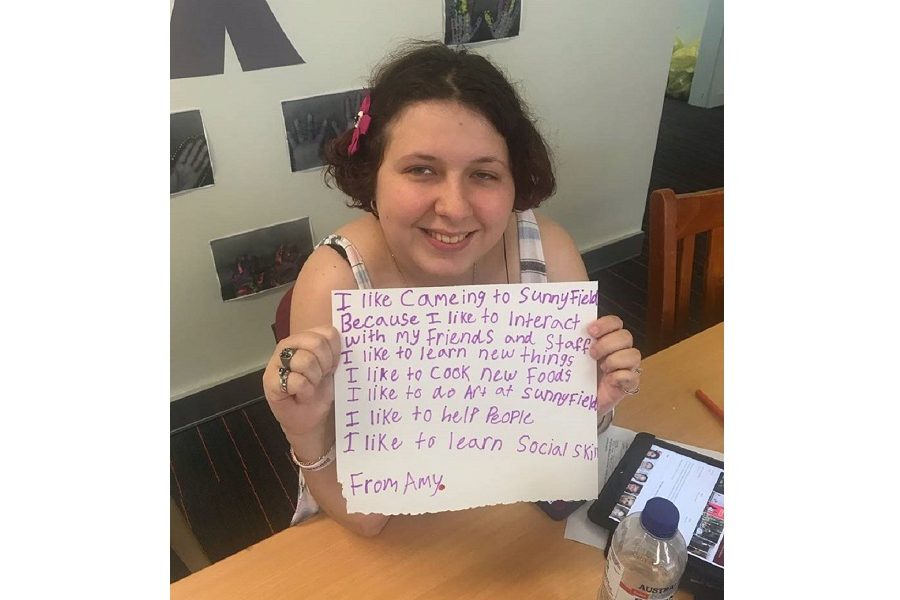 I like Cameing to SunnyField
Because I like to Interact
with my Friends and Staff
I like to learn new things
I like to Cook New Foods
I like to do Art at SunnyField
I like to help People
I like to learn Social
From Amy.
AUSTRA